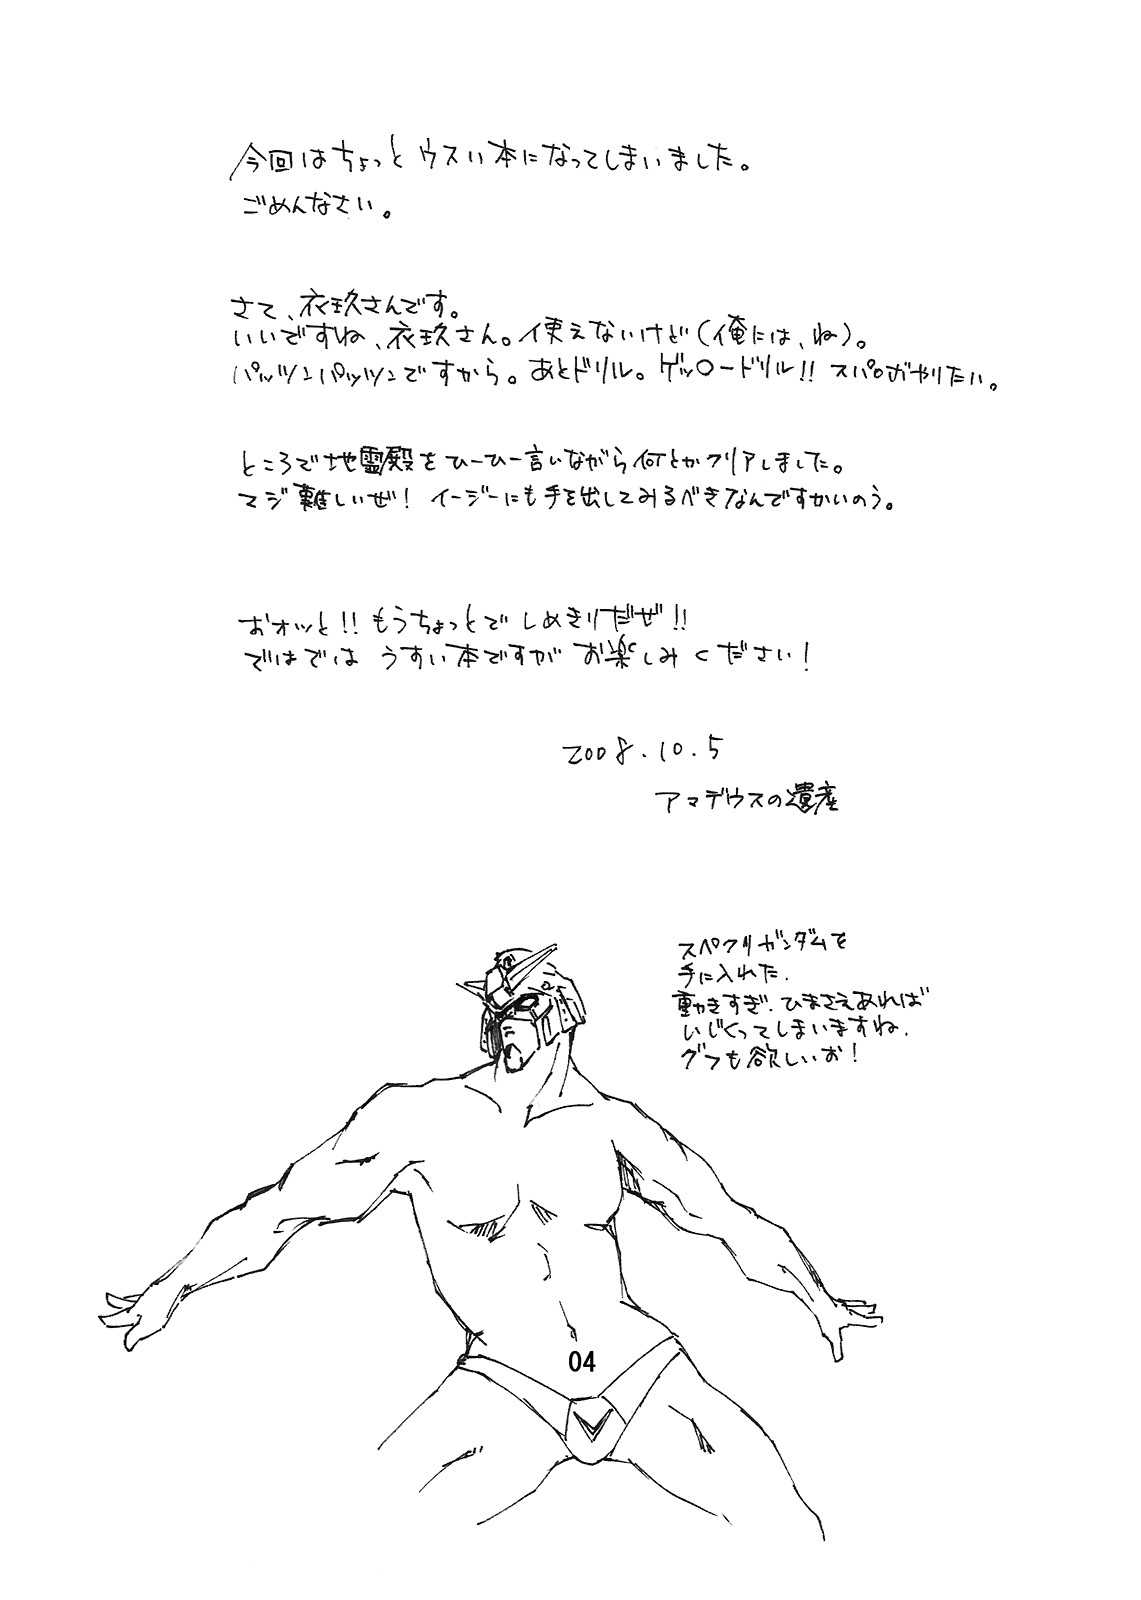 今回はちょっとウスい本になってしまいました。
ごめんなさい。
さて、衣玖さんです。
いいですね、衣玖さん。使えないけど(俺には、ね)。
パッツンパッツンですから。あとドリル。ゲッ〇ードリル!! スパロボやりたい。
ところで地霊殿をひーひー言いながら何とかクリアしました。
マジ難しいぜ! イージーにも手を出してみるべきなんですかいのう。
おオッと!! もうちょっとでしめきりだぜ!!
ではでは うすい本ですが お楽しみください!
2008.10.5
アマデウスの遺産
スペクリガンダムを
手に入れた.
動きすぎ.ひまさえあれば
いじくってしまいますね.
グフも欲しいお!
04